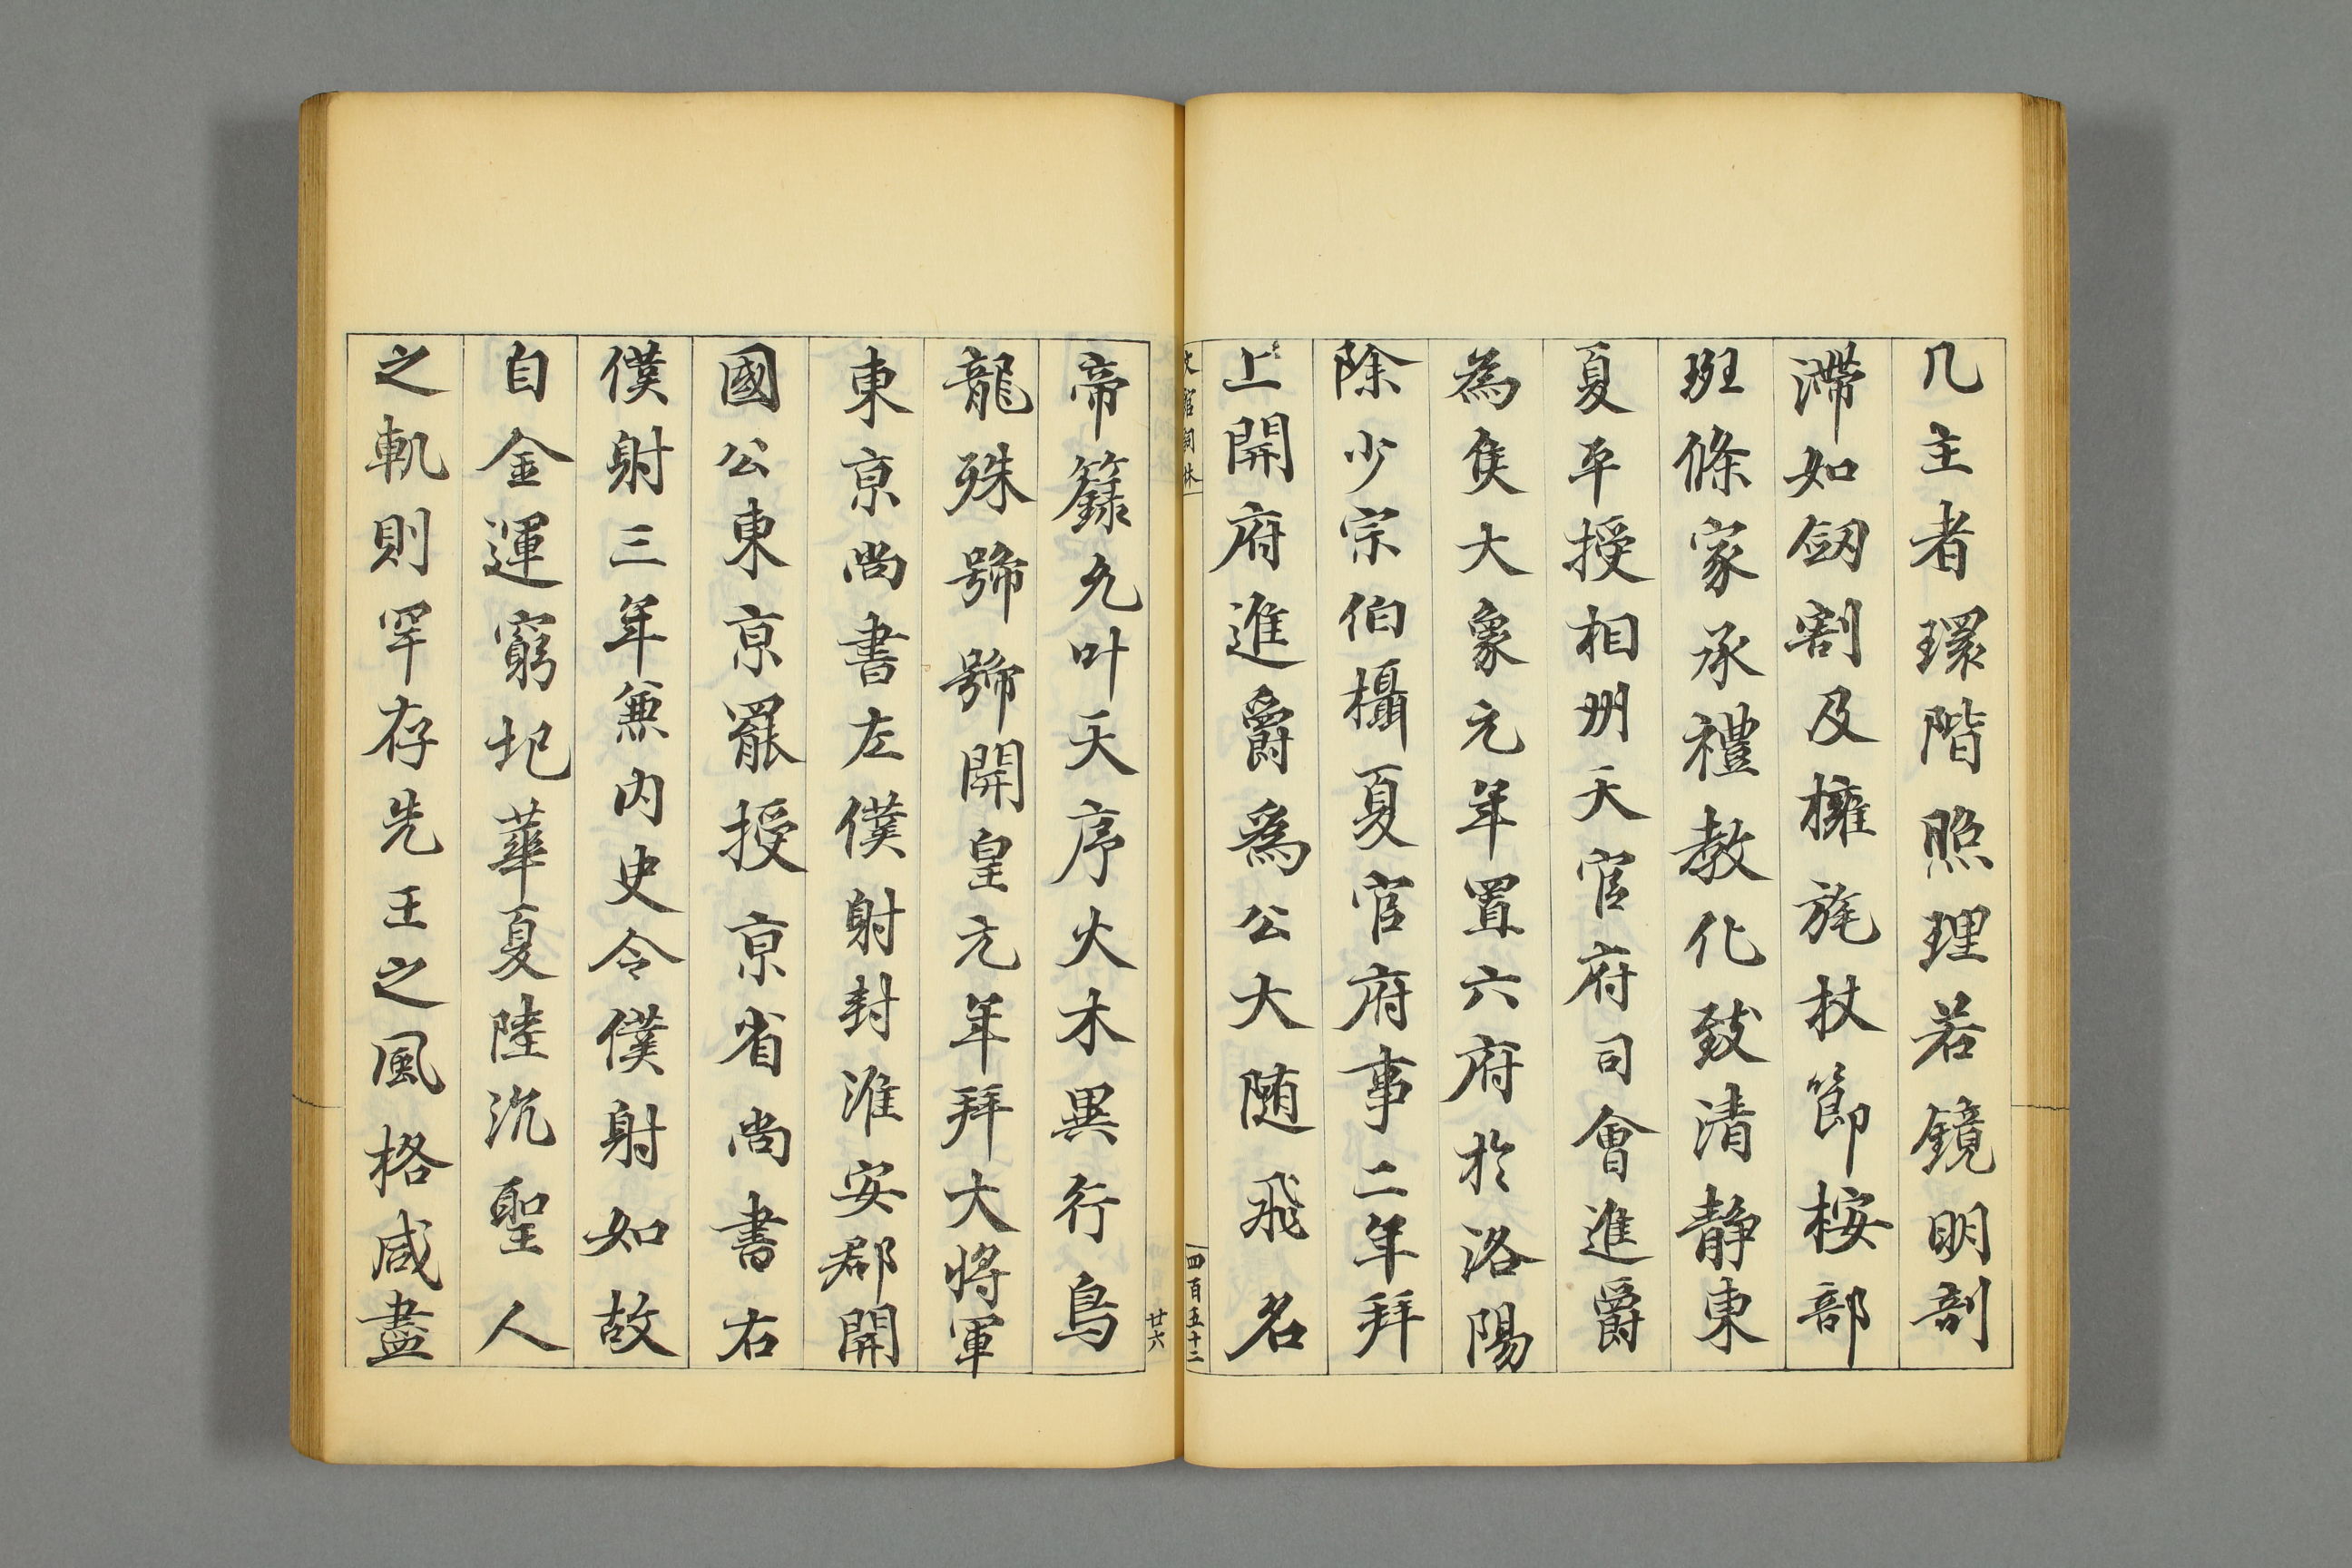 几主者環階照理若鏡明剖
滯如劒割及擁旄杖節桉部
班條家承禮教化致清静東
夏平授相州天官府司會進爵
為侯大象元年置六府於洛陽
除少宗伯攝夏官府事二年拜
上開府進爵為公大随飛名
文館詞林
四百五十二
廿六
帝籙允叶天序火木異行鳥
龍殊號號開皇元年拜大将軍
東京尚書左僕射封淮安郡開
國公東京罷授京省尚書右
僕射三年兼内史令僕射如故
自金運窮圮華夏陸沉聖人
之軌則罕存先王之風格咸盡